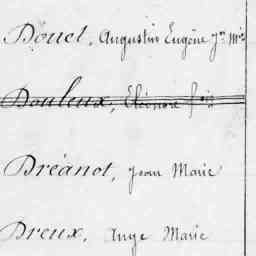 Douet, Augustin Eugène Jn Mie
Douleux, Eléonore fois
Dréanot, Jean Marie
Dreux, Ange Marie